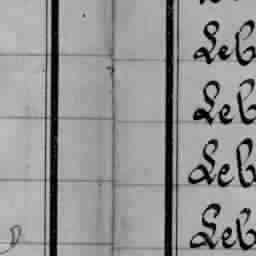 Leb
Leb
Leb
Leb